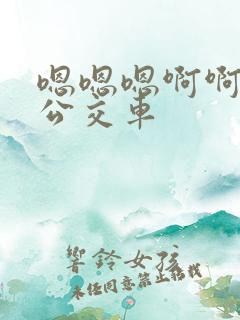 嗯嗯嗯啊啊
公交车
響鈴女孩
未经同意禁止转载